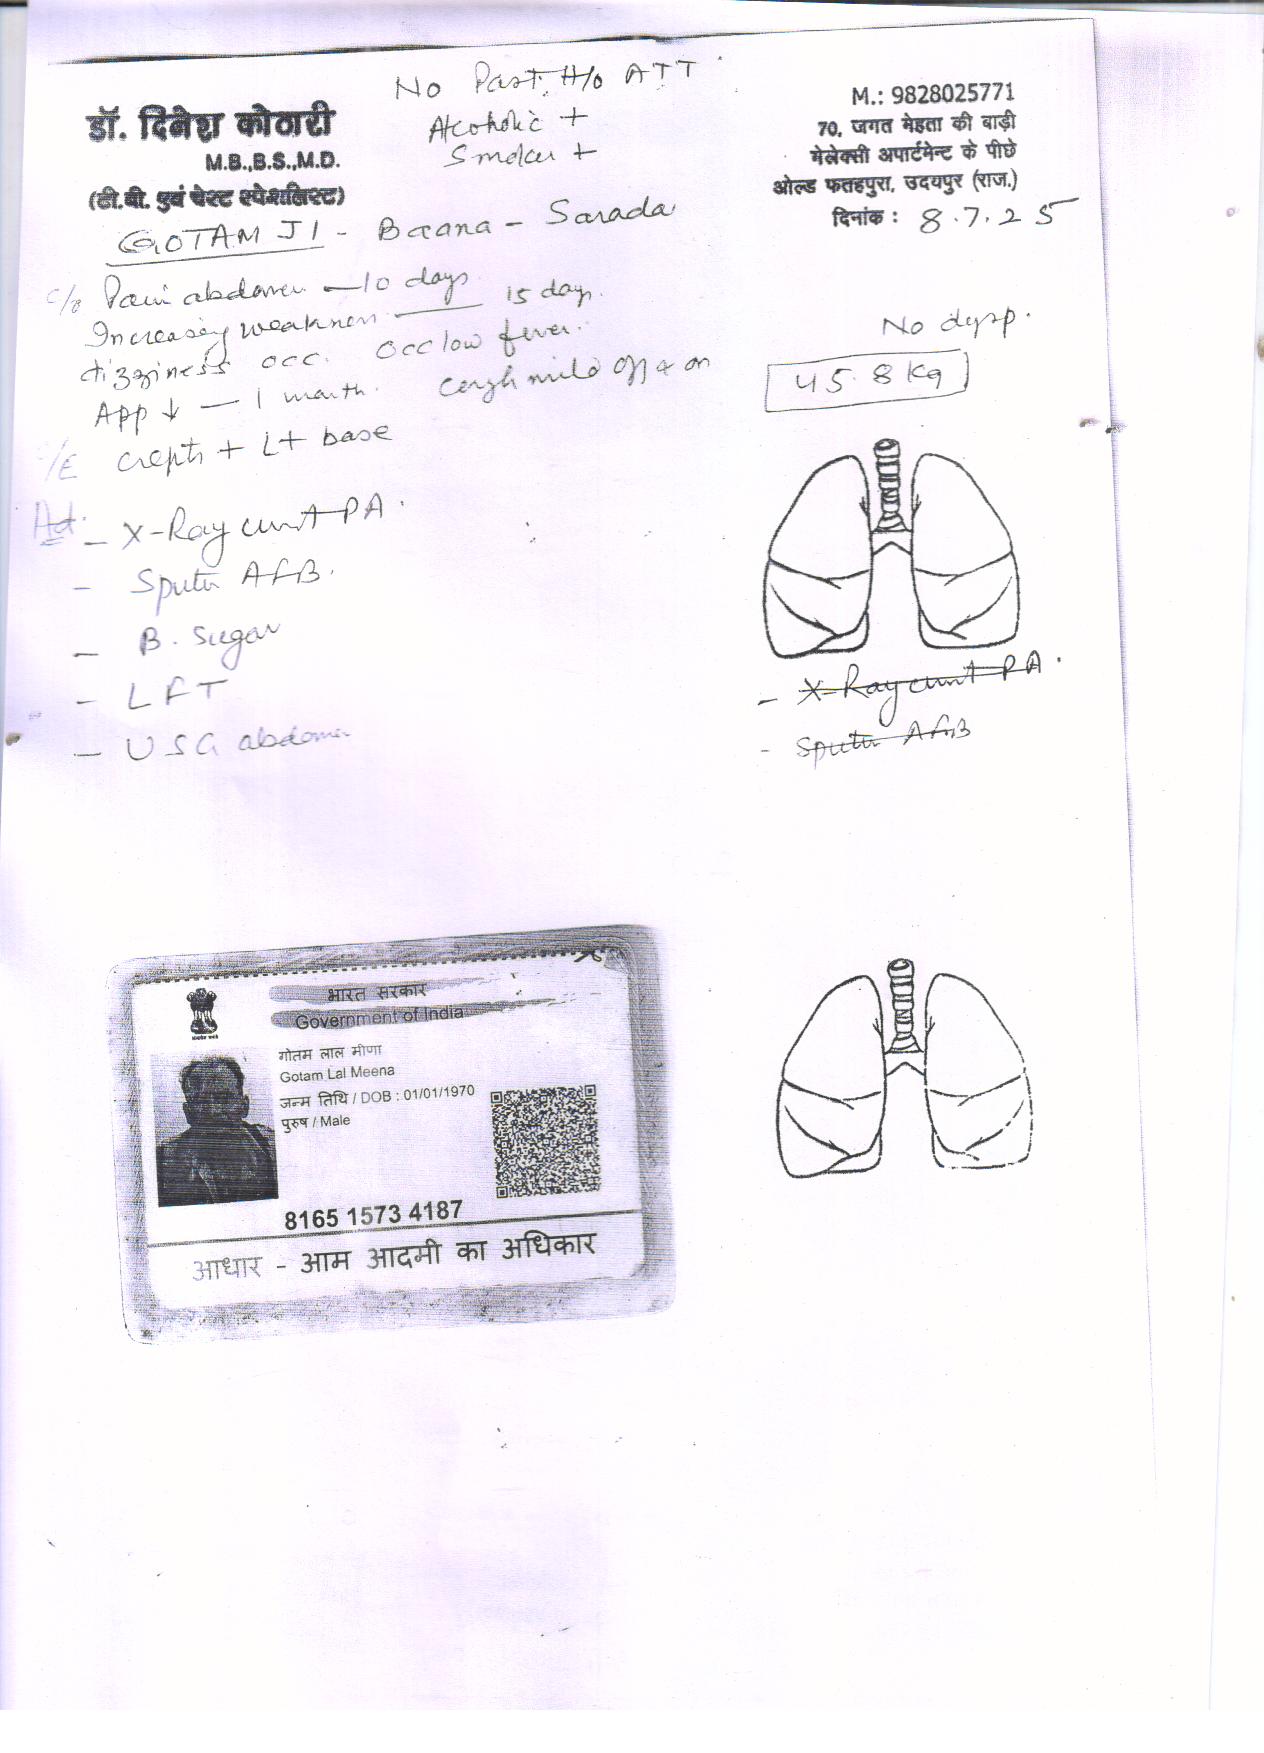 No Past H/o ATT
Alcoholic +
Smoker +
डॉ. दिनेश कोठारी
M.B.,B.S.,M.D.
(टी.बी. एवं चेस्ट स्पेशलिस्ट)
M.: 9828025771
70, जगत मेहता की बाड़ी
गेलेक्सी अपार्टमेन्ट के पीछे
ओल्ड फतहपुरा, उदयपुर (राज.)
दिनांक : 8.7.25
GOTAM JI - - Sarada
C/o Pain abdomen — 10 days
Increasing weakness — 15 days.
dizziness occ. occ low fever.
App ↓ — 1 month. Cough mild off & on
No dysp.
45.8 Kg
O/E crepts + Lt base
Ad.
- X-Ray chest PA.
- Sputum AFB.
- B. Sugar
- LFT
- USG abdomen
- X-Ray chest PA.
- Sputum AFB
भारत सरकार
Government of India
गोतम लाल मीणा
Gotam Lal Meena
जन्म तिथि / DOB : 01/01/1970
पुरुष / Male
8165 1573 4187
आधार - आम आदमी का अधिकार